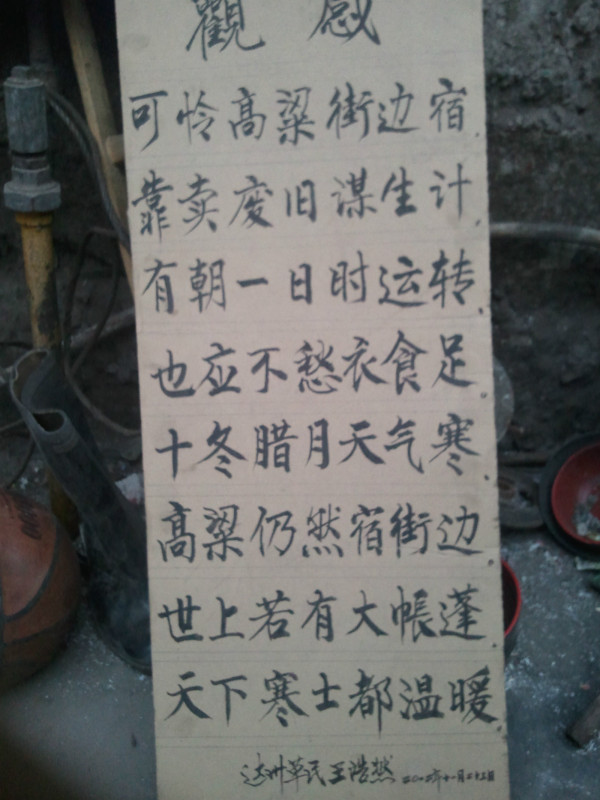 觀感
可怜高粱街边宿
靠卖废旧谋生计
有朝一日时运转
也应不愁衣食足
十冬腊月天气寒
高粱仍然宿街边
世上若有大帳蓬
天下寒士都温暖
达州草民王浩然